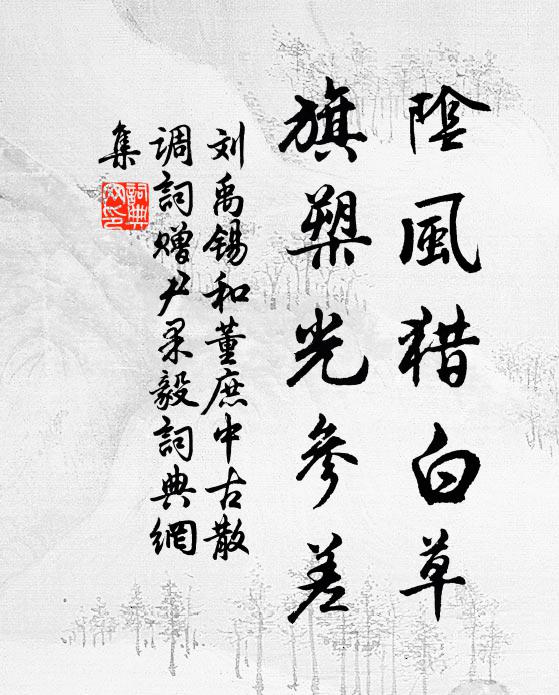 陰風猎白草
旗槊光參差
刘禹锡和董庶中古散
调詞赠尹果毅詞典網
集
詞典網印